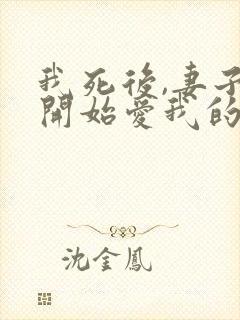 我死後,妻子
開始愛我的
沈金鳳